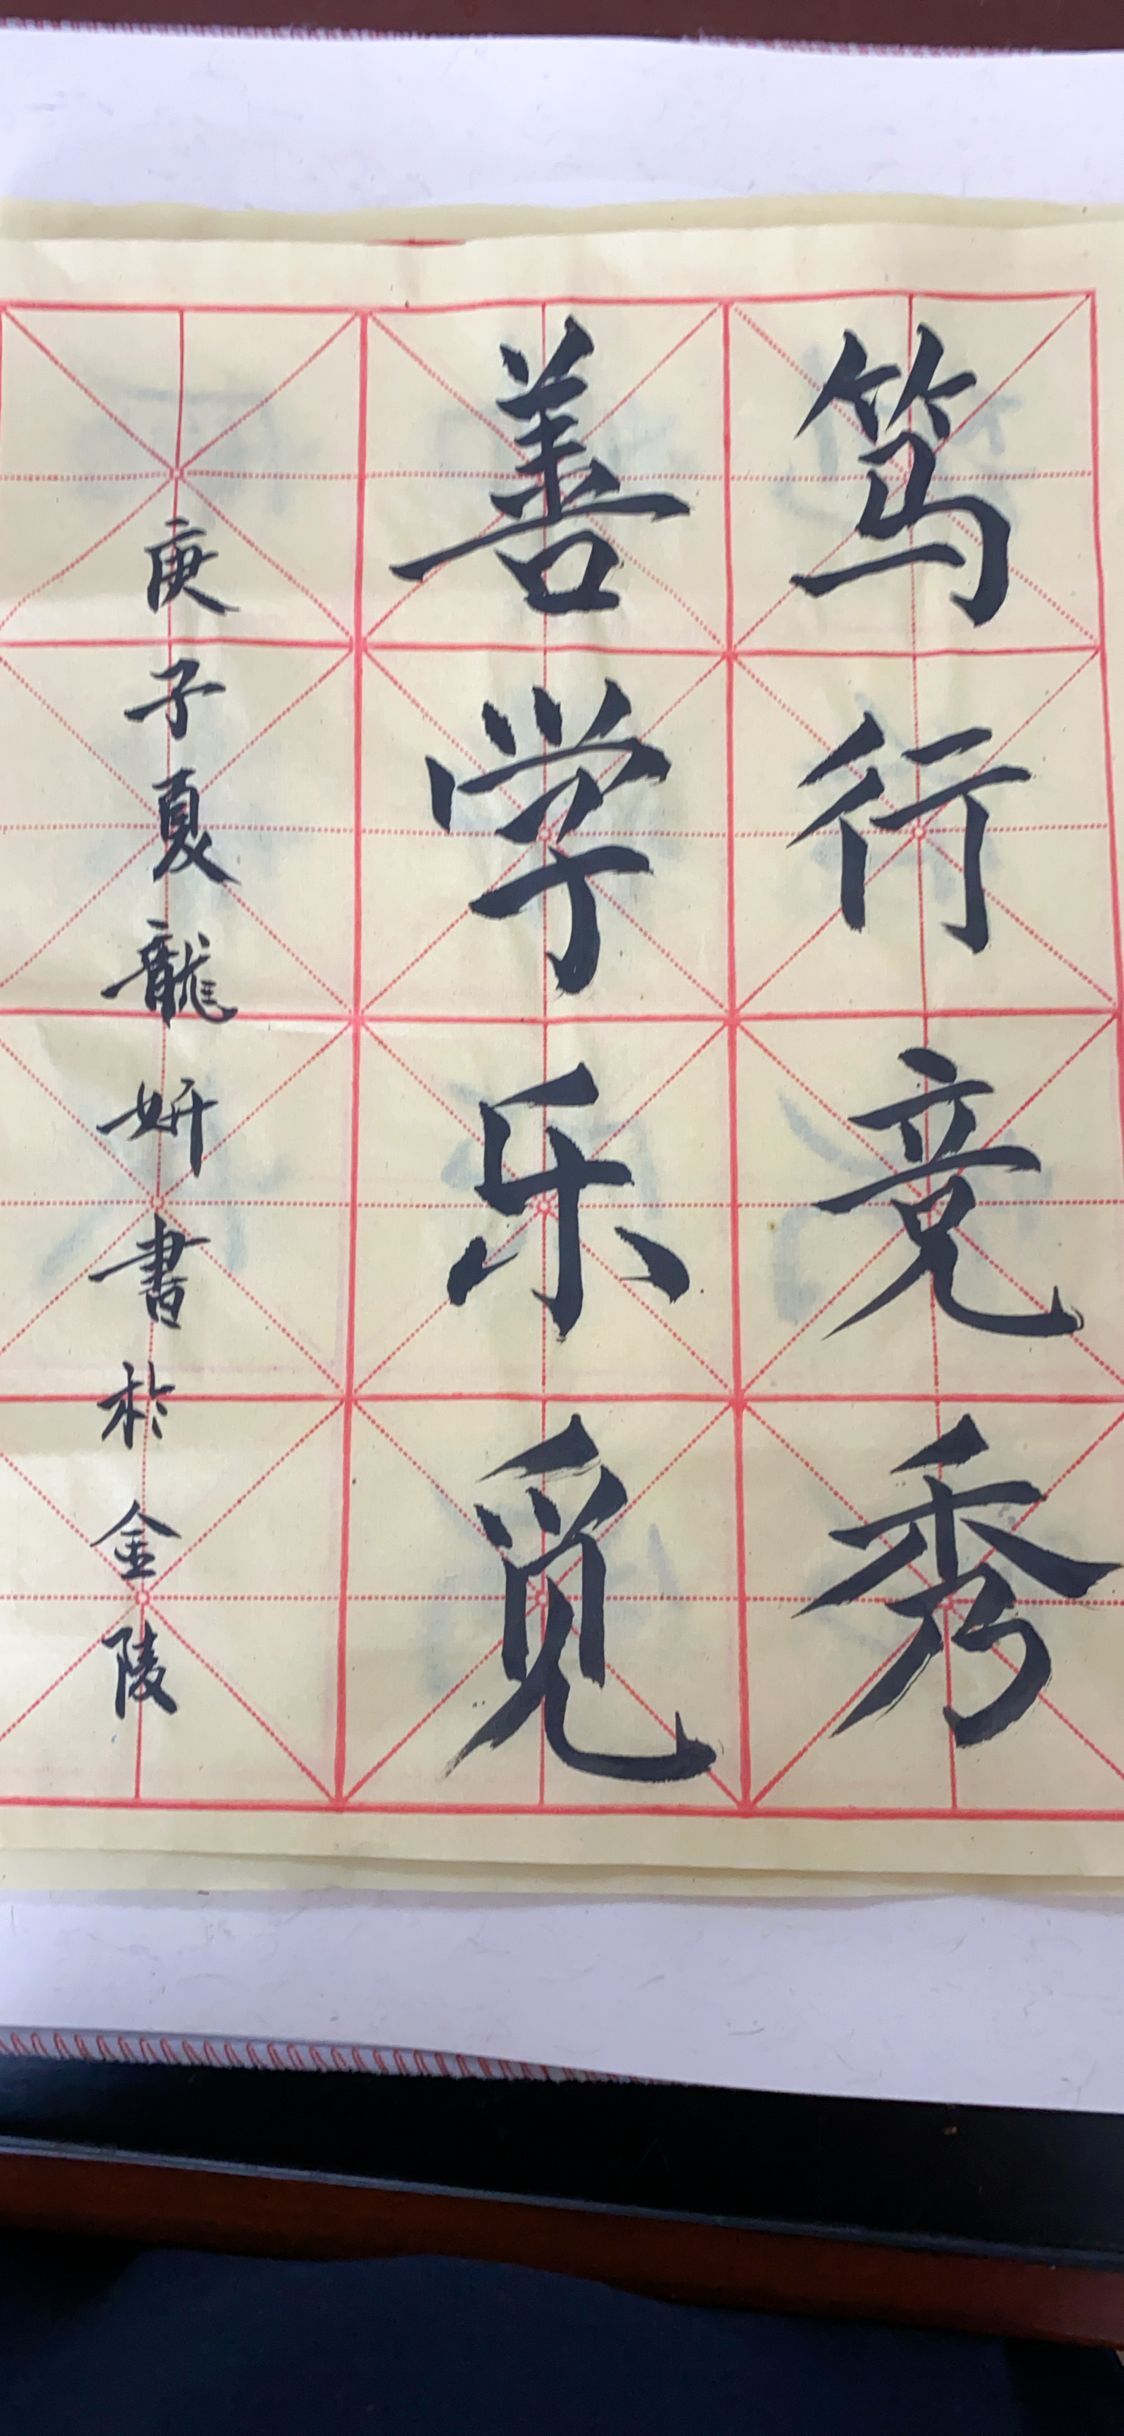 笃行竞秀
善学乐觅
庚子夏龍妍書於金陵